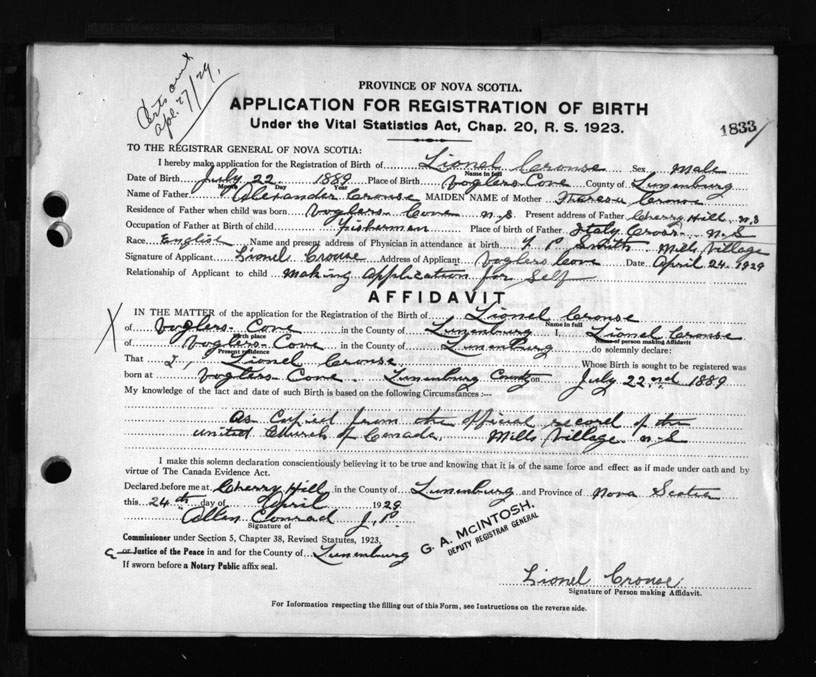 Certs out
Apl. 27/29.
PROVINCE OF NOVA SCOTIA.
APPLICATION FOR REGISTRATION OF BIRTH
Under the Vital Statistics Act, Chap. 20, R. S. 1923.
1833
TO THE REGISTRAR GENERAL OF NOVA SCOTIA:
I hereby make application for the Registration of Birth of Lionel Crouse Sex Male
Name in full
Date of Birth July 22 1889 Place of Birth Voglers Cove County of Lunenburg
Month Day Year
Name of Father Alexander Crouse MAIDEN NAME of Mother Theresa Crouse
Residence of Father when child was born Voglers Cove N.S Present address of Father Cherry Hill, N.S
Occupation of Father at Birth of child Fisherman Place of birth of Father Italy Cross N.S
Race English Name and present address of Physician in attendance at birth F P Smith Mills Village
Signature of Applicant Lionel Crouse Address of Applicant Voglers Cove Date April 24 1929
Relationship of Applicant to child Making Application for Self
AFFIDAVIT
IN THE MATTER of the application for the Registration of the Birth of Lionel Crouse
Name in full
of Voglers Cove in the County of Lunenburg I, Lionel Crouse
Birth place Name of person making Affidavit
of Voglers Cove in the County of Lunenburg do solemnly declare:
Present residence
That I, Lionel Crouse Whose Birth is sought to be registered was
born at Voglers Cove Lunenburg County on July 22nd 1889
My knowledge of the fact and date of such Birth is based on the following Circumstances:—
As Copied from the official record of the
United Church of Canada, Mills Village N.S
I make this solemn declaration conscientiously believing it to be true and knowing that it is of the same force and effect as if made under oath and by
virtue of The Canada Evidence Act.
Declared before me at Cherry Hill in the County of Lunenburg and Province of Nova Scotia
this 24th day of April 1929
Allen Conrad J.P.
Signature of
Commissioner under Section 5, Chapter 38, Revised Statutes, 1923,
or Justice of the Peace in and for the County of Lunenburg
If sworn before a Notary Public affix seal.
G. A. McINTOSH,
DEPUTY REGISTRAR GENERAL
Lionel Crouse
Signature of Person making Affidavit.
For Information respecting the filling out of this Form, see Instructions on the reverse side.